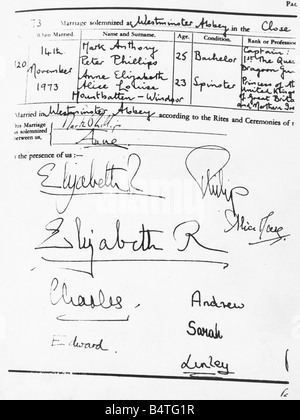 Pag
73 Marriage solemnized at Westminster Abbey in the Close
When Married. Name and Surname. Age. Condition. Rank or Profession
120 14th November 1973 Mark Anthony Peter Phillips 25 Bachelor Captain 1st The Que Dragoon
Anne Elizabeth Alice Louise Mountbatten-Windsor 23 Spinster Princess of th United Kingdom of Great Britai and Northern Ir
Married in Westminster Abbey according to the Rites and Ceremonies of
his Marriage
as solemnized
between us,
Mark Phillips
Anne
the presence of us:—
Elizabeth R Philip
Elizabeth R
Charles. Andrew
Edward. Sarah
Linley
alamy
B4TG1R